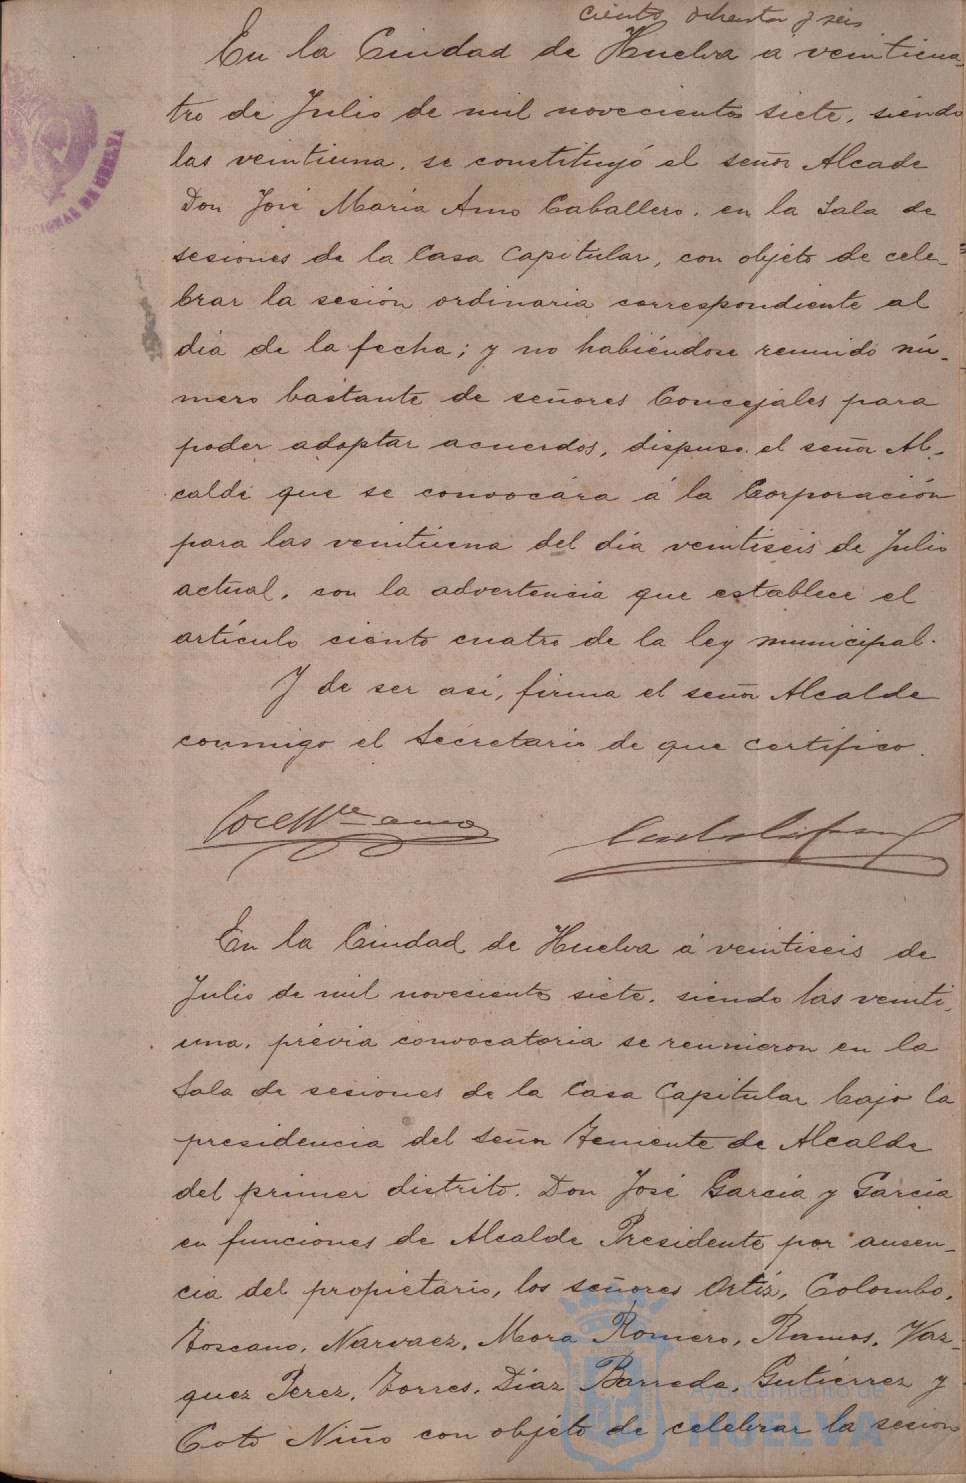 ciento ochenta y seis
En la Ciudad de Huelva a veinticua-
tro de Julio de mil novecientos siete, siendo
las veintiuna, se constituyó el señor Alcade
Don José María Amo Caballero, en la Sala de
sesiones de la Casa Capitular, con objéto de cele-
brar la sesión ordinaria correspondiente al
dia de la fecha; y no habiéndose reunido nú-
mero bastante de señores Concejales para
poder adoptar acuerdos, dispuso el señor Al-
calde que se convocára á la Corporación
para las veintiuna del dia veintiseis de Julio
actual, con la advertencia que establece el
artículo ciento cuatro de la ley municipal.
Y de ser asi, firma el señor Alcalde
conmigo el Secretario de que certifico.
José Mª Amo
En la Ciudad de Huelva á veintiseis de
Julio de mil novecientos siete, siendo las veinti-
una, prévia convocatoria se reunieron en la
Sala de sesiones de la Casa Capitular bajo la
presidencia del Señor Teniente de Alcalde
del primer distrito, Don José Garcia y Garcia
en funciones de Alcalde Presidente por ausen-
cia del propietario, los señores Ortiz, Colombo,
Toscano, Narvaez, Mora Romero, Ramos, Vaz-
quez Perez, Torres, Diaz Barreda, Gutiérrez y
Coto Niño con objéto de celebrar la sesion
Ayuntamiento de
HUELVA